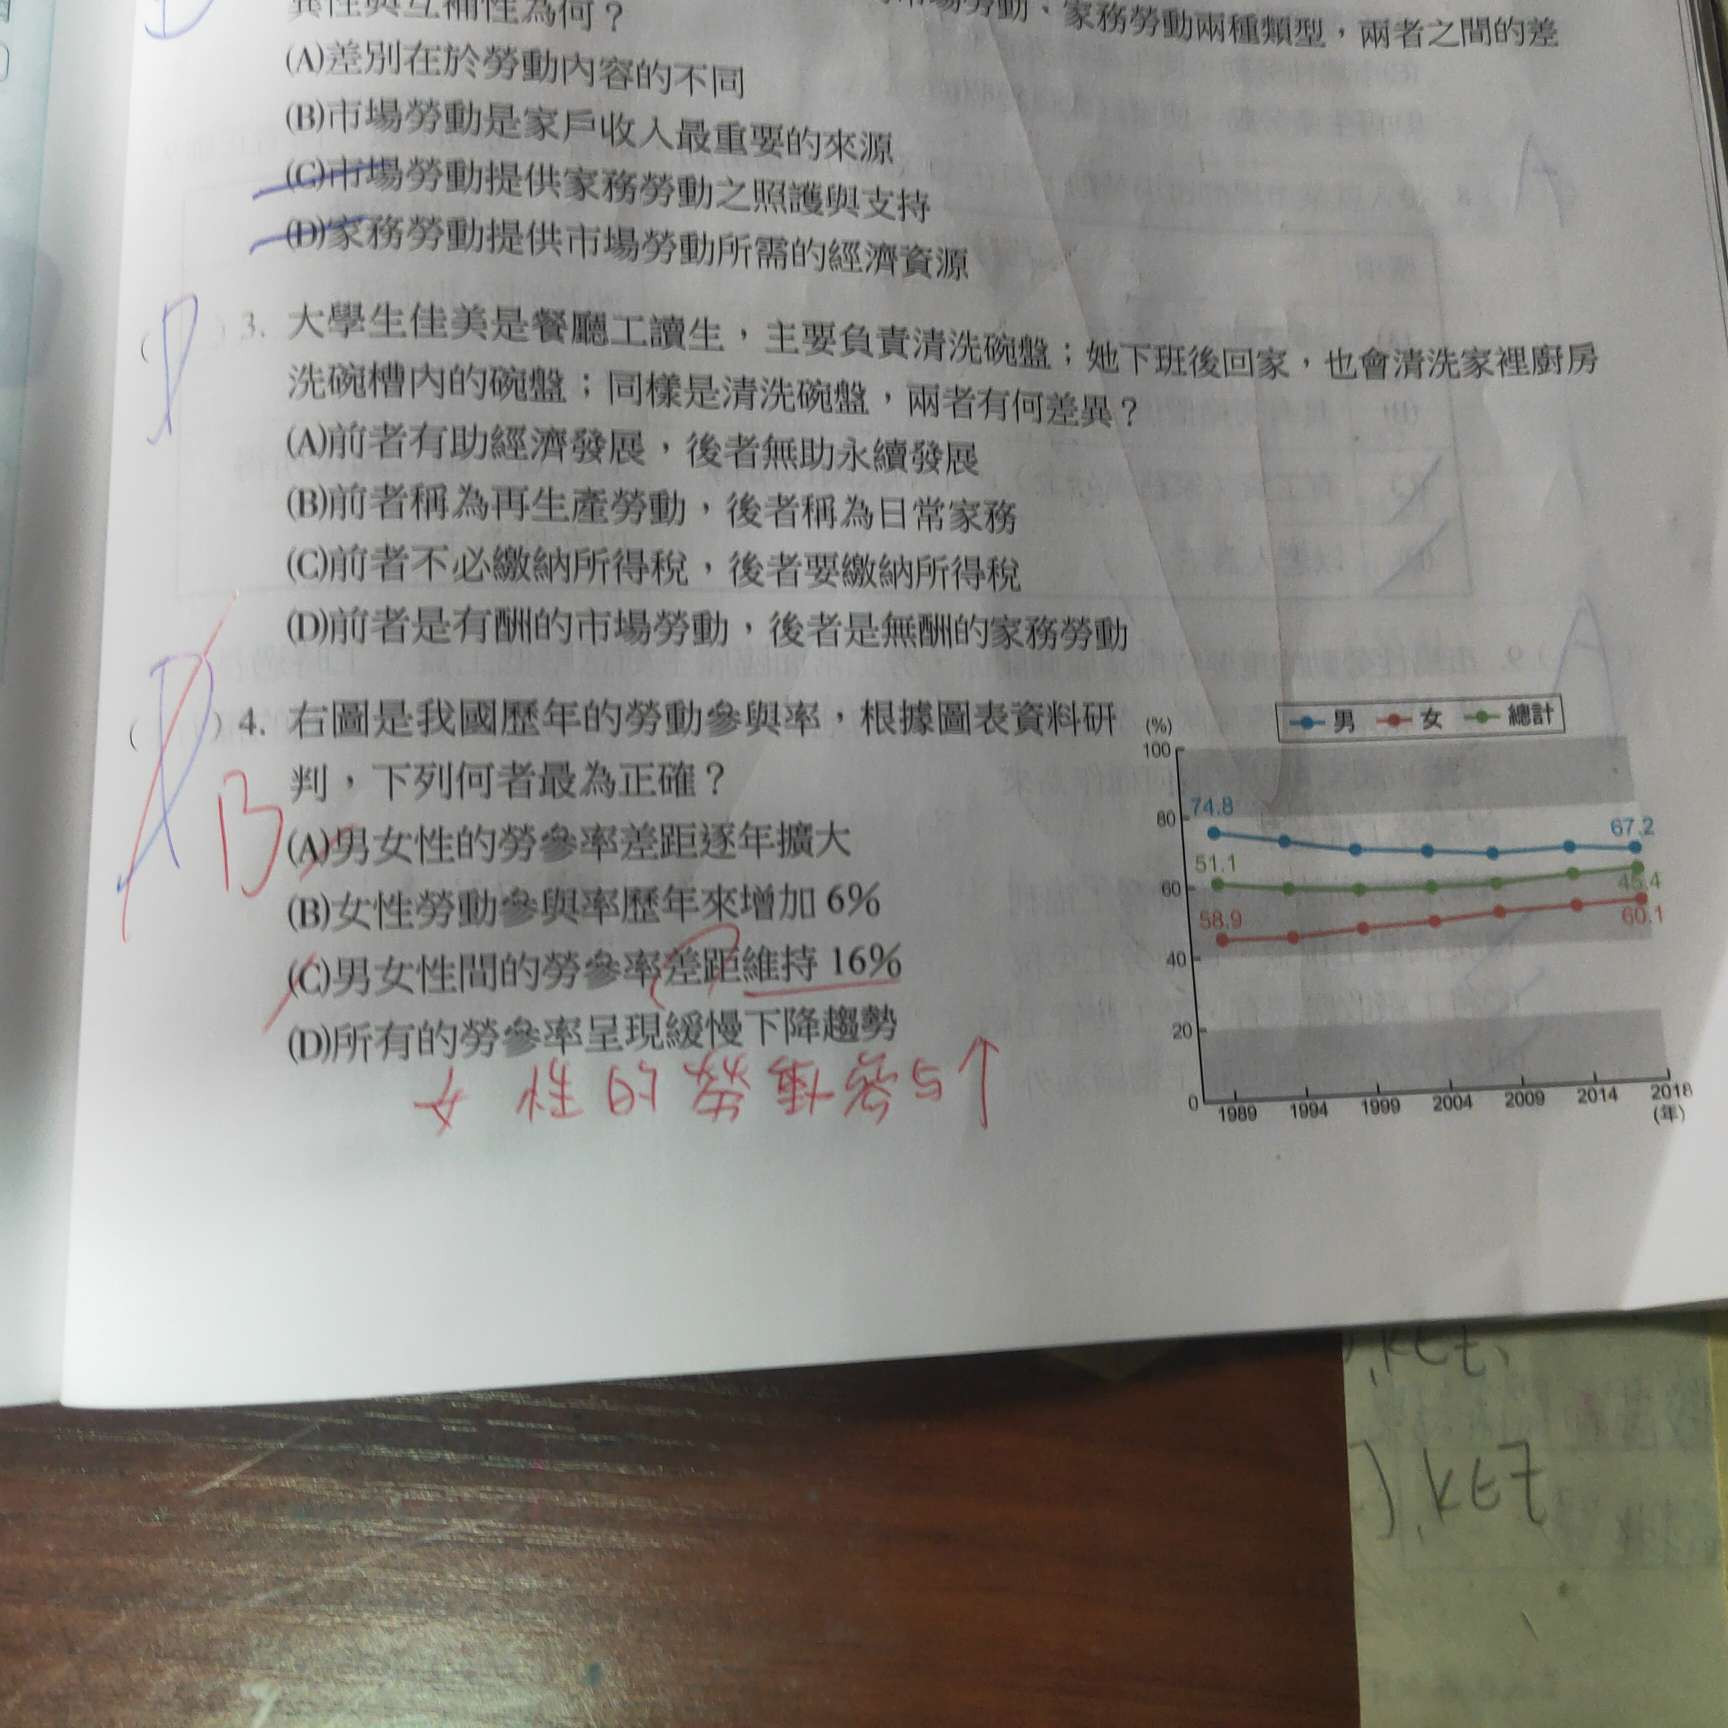 異性與互補性為何？
市場勞動、家務勞動兩種類型，兩者之間的差
(A)差別在於勞動內容的不同
(B)市場勞動是家戶收入最重要的來源
(C)市場勞動提供家務勞動之照護與支持
(D)家務勞動提供市場勞動所需的經濟資源
( D ) 3. 大學生佳美是餐廳工讀生，主要負責清洗碗盤；她下班後回家，也會清洗家裡廚房
洗碗槽內的碗盤；同樣是清洗碗盤，兩者有何差異？
(A)前者有助經濟發展，後者無助永續發展
(B)前者稱為再生產勞動，後者稱為日常家務
(C)前者不必繳納所得稅，後者要繳納所得稅
(D)前者是有酬的市場勞動，後者是無酬的家務勞動
( D ) 4. 右圖是我國歷年的勞動參與率，根據圖表資料研
判，下列何者最為正確？
B
(A)男女性的勞參率差距逐年擴大
(B)女性勞動參與率歷年來增加 6%
(C)男女性間的勞參率差距維持 16%
(D)所有的勞參率呈現緩慢下降趨勢
女性的勞動參与↑
男 女 總計
(%)
100
80
60
40
20
0
74.8
67.2
51.1
45.4
58.9
60.1
1989 1994 1999 2004 2009 2014 2018
(年)
ket
), ket